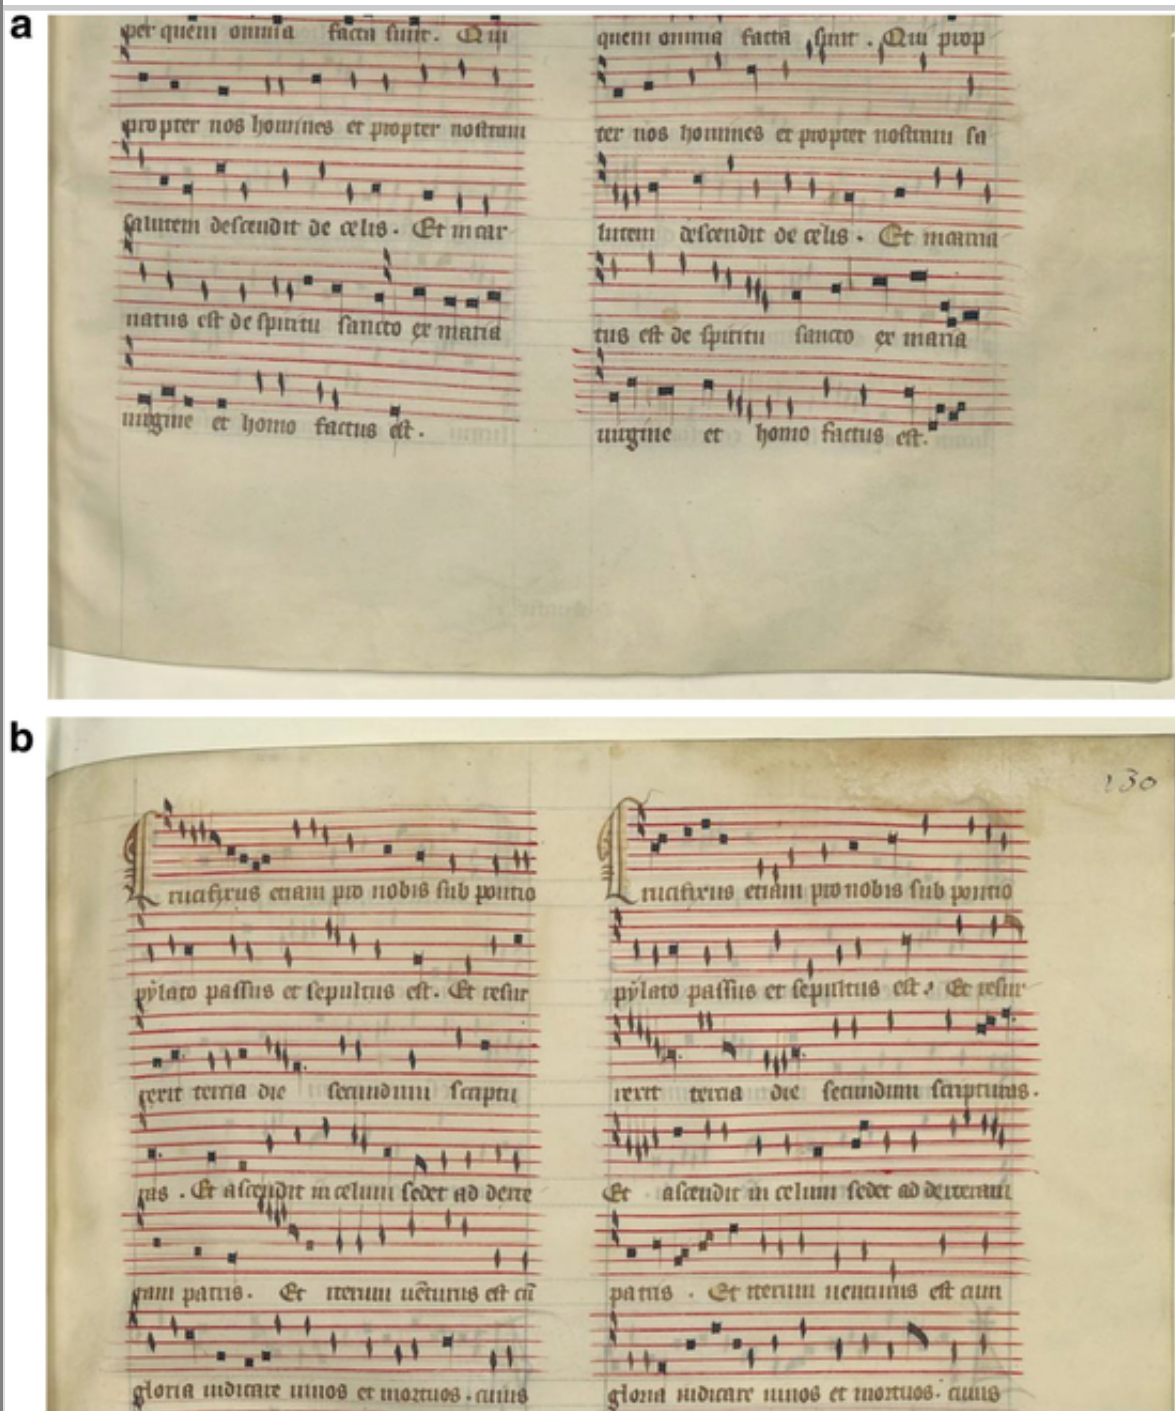 a
per quem omnia facta sunt. Qui
propter nos homines et propter nostram
salutem descendit de celis. Et incar
natus est de spiritu sancto ex maria
uirgine et homo factus est.
quem omnia facta sunt. Qui prop
ter nos homines et propter nostram sa
lutem descendit de celis. Et incarna
tus est de spiritu sancto ex maria
uirgine et homo factus est.
b
130
Crucifixus etiam pro nobis sub pontio
pylato passus et sepultus est. Et resur
rexit tercia die secundum scriptu
ras. Et ascendit in celum sedet ad dexte
ram patris. Et iterum uēturus est cū
gloria iudicare uiuos et mortuos. cuius
Crucifixus etiam pro nobis sub pontio
pylato passus et sepultus est. Et resur
rexit tercia die secundum scripturas.
Et ascendit in celum sedet ad dexteram
patris. Et iterum uenturus est cum
gloria iudicare uiuos et mortuos. cuius